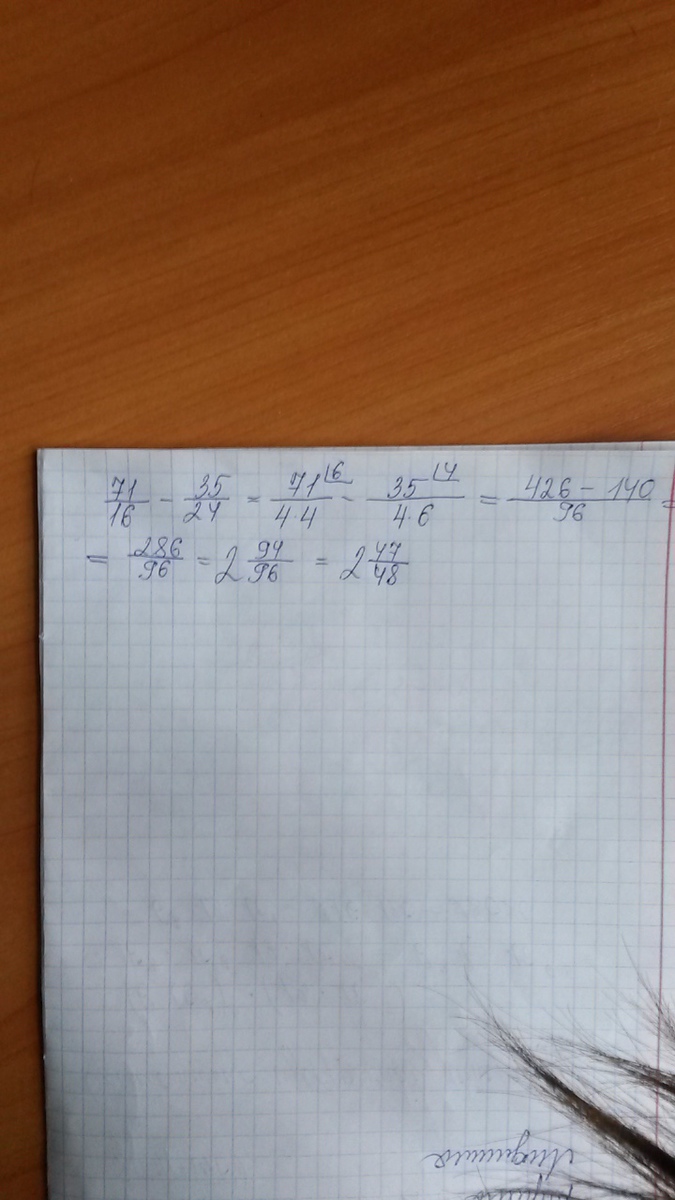 71/16 - 35/24 = 71⌊6/4·4 - 35⌊4/4·6 = 426 - 140/96 =
= 286/96 = 2 94/96 = 2 47/48